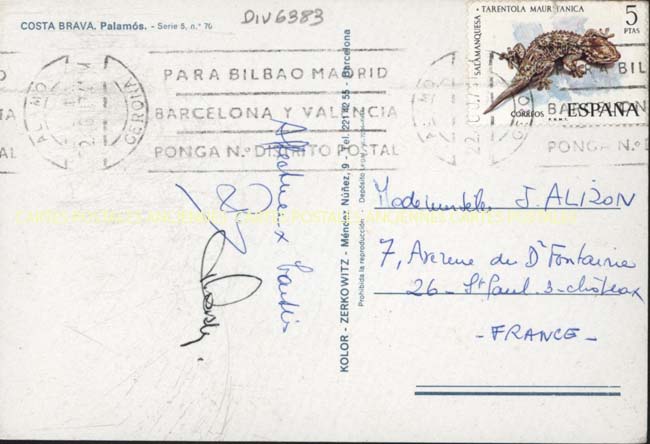 COSTA BRAVA. Palamós. - Serie 5, n.° 76
DIV6383
SALAMANQUESA
TARENTOLA MAURITANICA
5
PTAS
CORREOS
ESPAÑA
PALAMOS
GERONA
PARA BILBAO MADRID
BARCELONA Y VALENCIA
PONGA N.° DISTRITO POSTAL
Affectueux
KOLOR - ZERKOWITZ - Méndez Núñez, 9 - Tel. 221 42 55 - Barcelona
Prohibida la reproducción - Depósito Legal
Mademoiselle J. ALIZON
7, Avenue du Dr Fontaine
26 - St Paul-3-châteaux
- FRANCE -
CARTES POSTALES ANCIENNES CARTES POSTALES ANCIENNES CARTES POSTALES